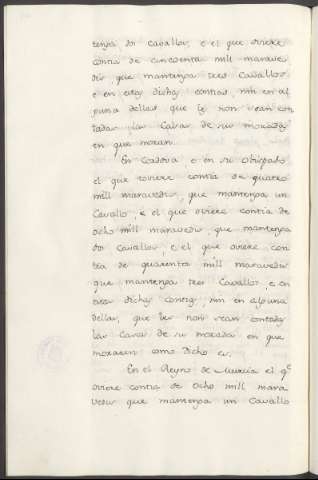 tenga dos Cavallos, e el que oviere
contia de cincuenta mill marave
dis que mantenga tres Cavallos
e en estas dichas contias, nin en al
guna dellas que le non sean con
tadas las Casas de su morada
en que moran.
En Cordova e en su obispado
el que toviere contia de quatro
mill maravedis, que mantenga un
Cavallo, e el que oviere contia de
ocho mill maravedis, que mantenga
dos Cavallos, e el que oviere con
tia de quarenta mill maravedis
que mantenga tres Cavallos, e en
estas dichas contias, nin en alguna
dellas, que les non sean contadas
las Casas de su morada en que
moraren como dicho es.
En el Reyno de Murcia el q.e
oviere contia de ocho mill mara
vedis que mantenga un Cavallo